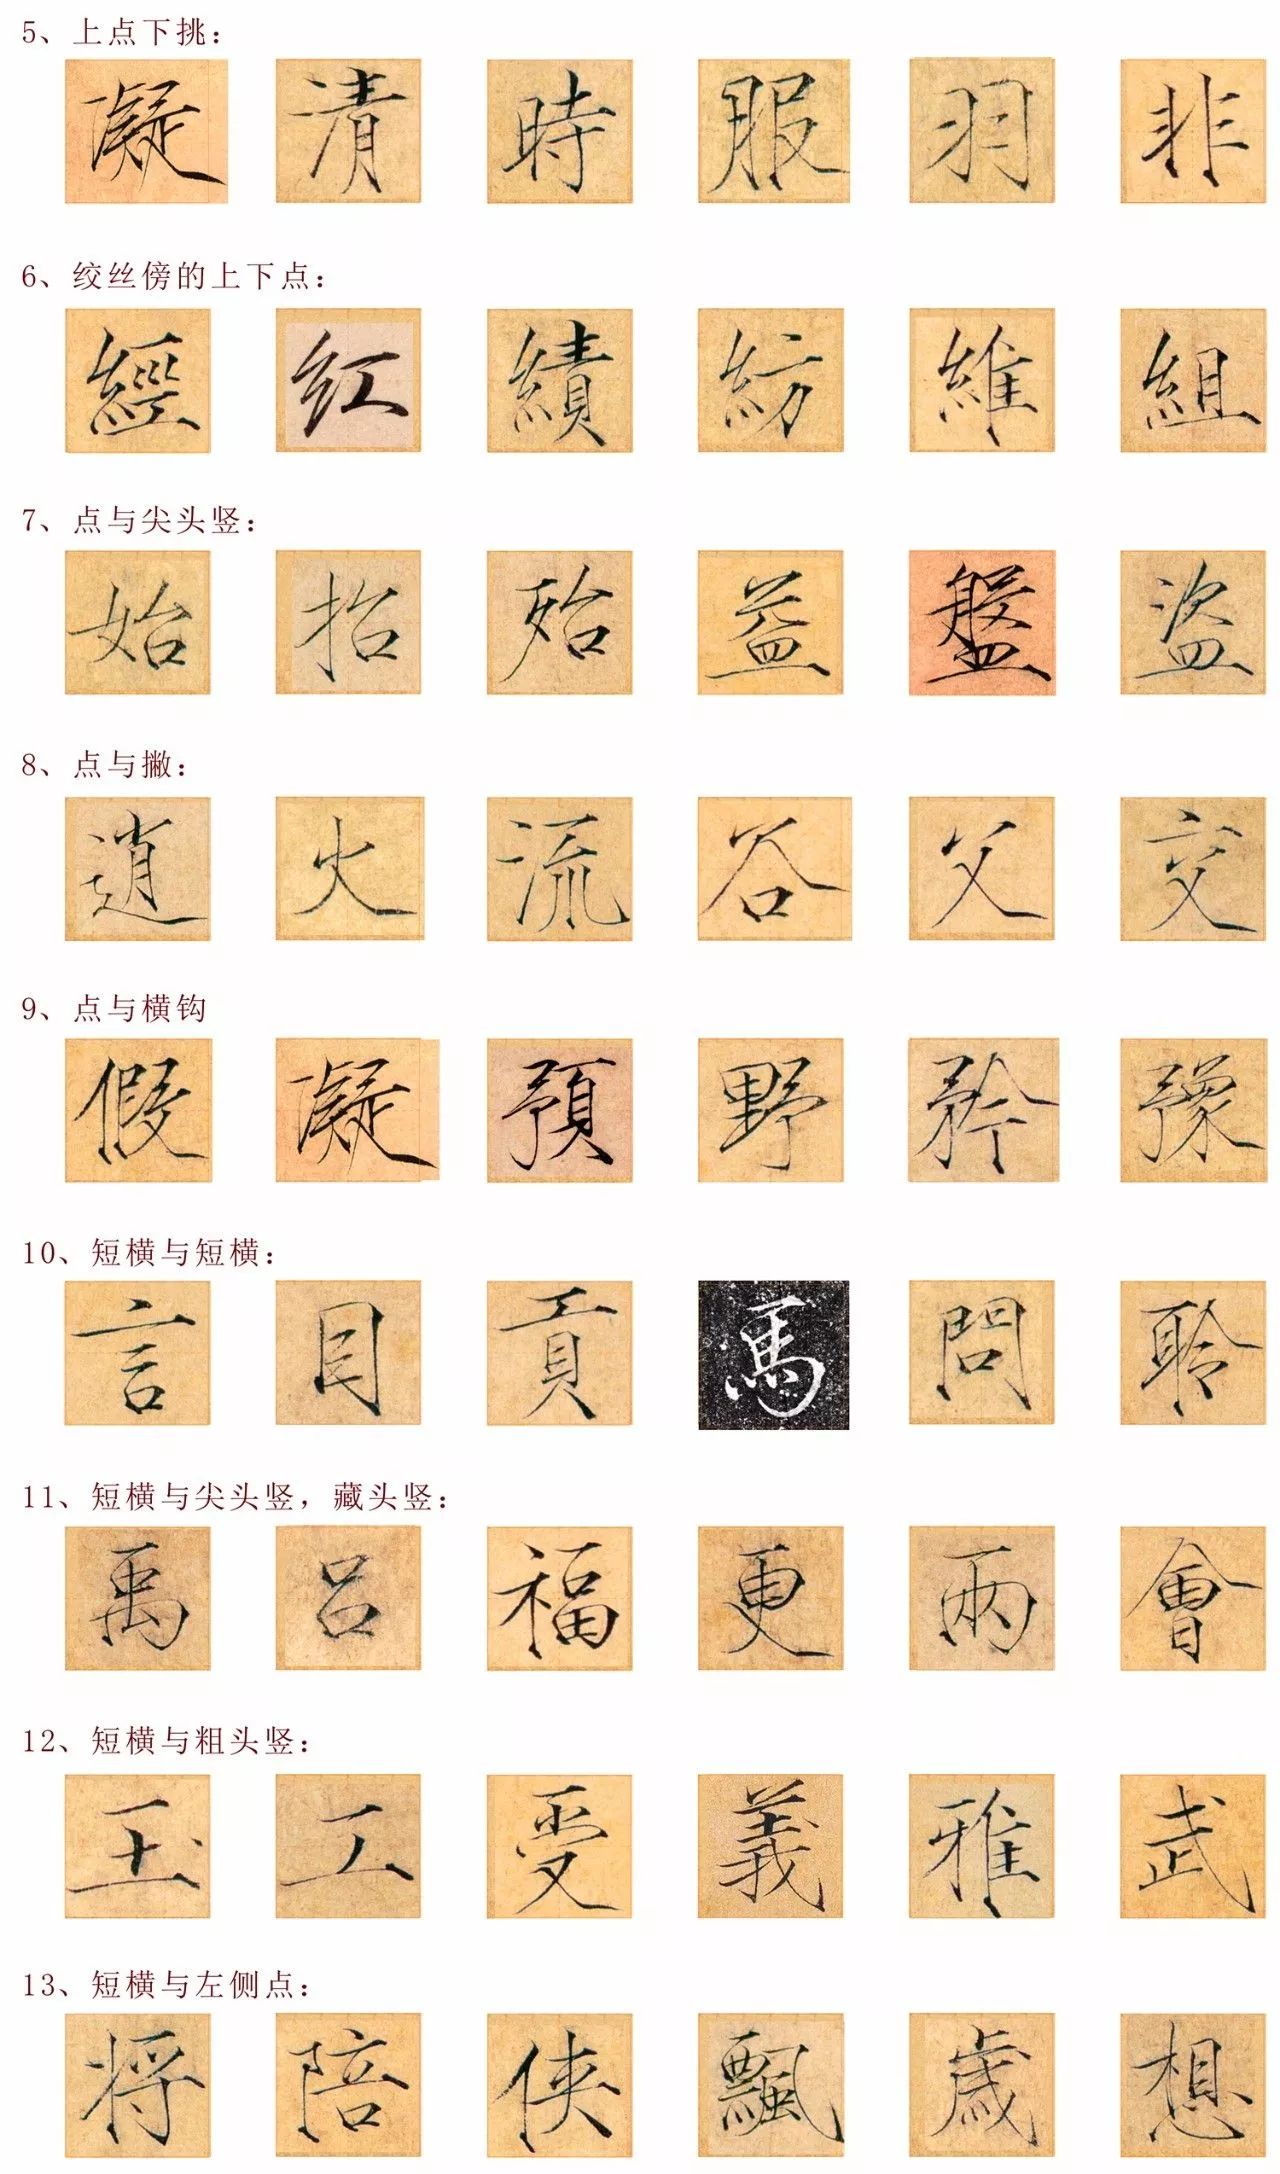 5、上点下挑：
凝 清 時 服 羽 非
6、绞丝傍的上下点：
經 红 績 紡 維 組
7、点与尖头竖：
始 抬 殆 益 盤 盗
8、点与撇：
逍 火 流 谷 父 交
9、点与横钩
假 凝 預 野 矜 豫
10、短横与短横：
言 目 貢 馬 問 聆
11、短横与尖头竖，藏头竖：
禹 吕 福 更 兩 會
12、短横与粗头竖：
玉 工 受 義 雅 武
13、短横与左侧点：
将 陪 侠 飄 歲 想